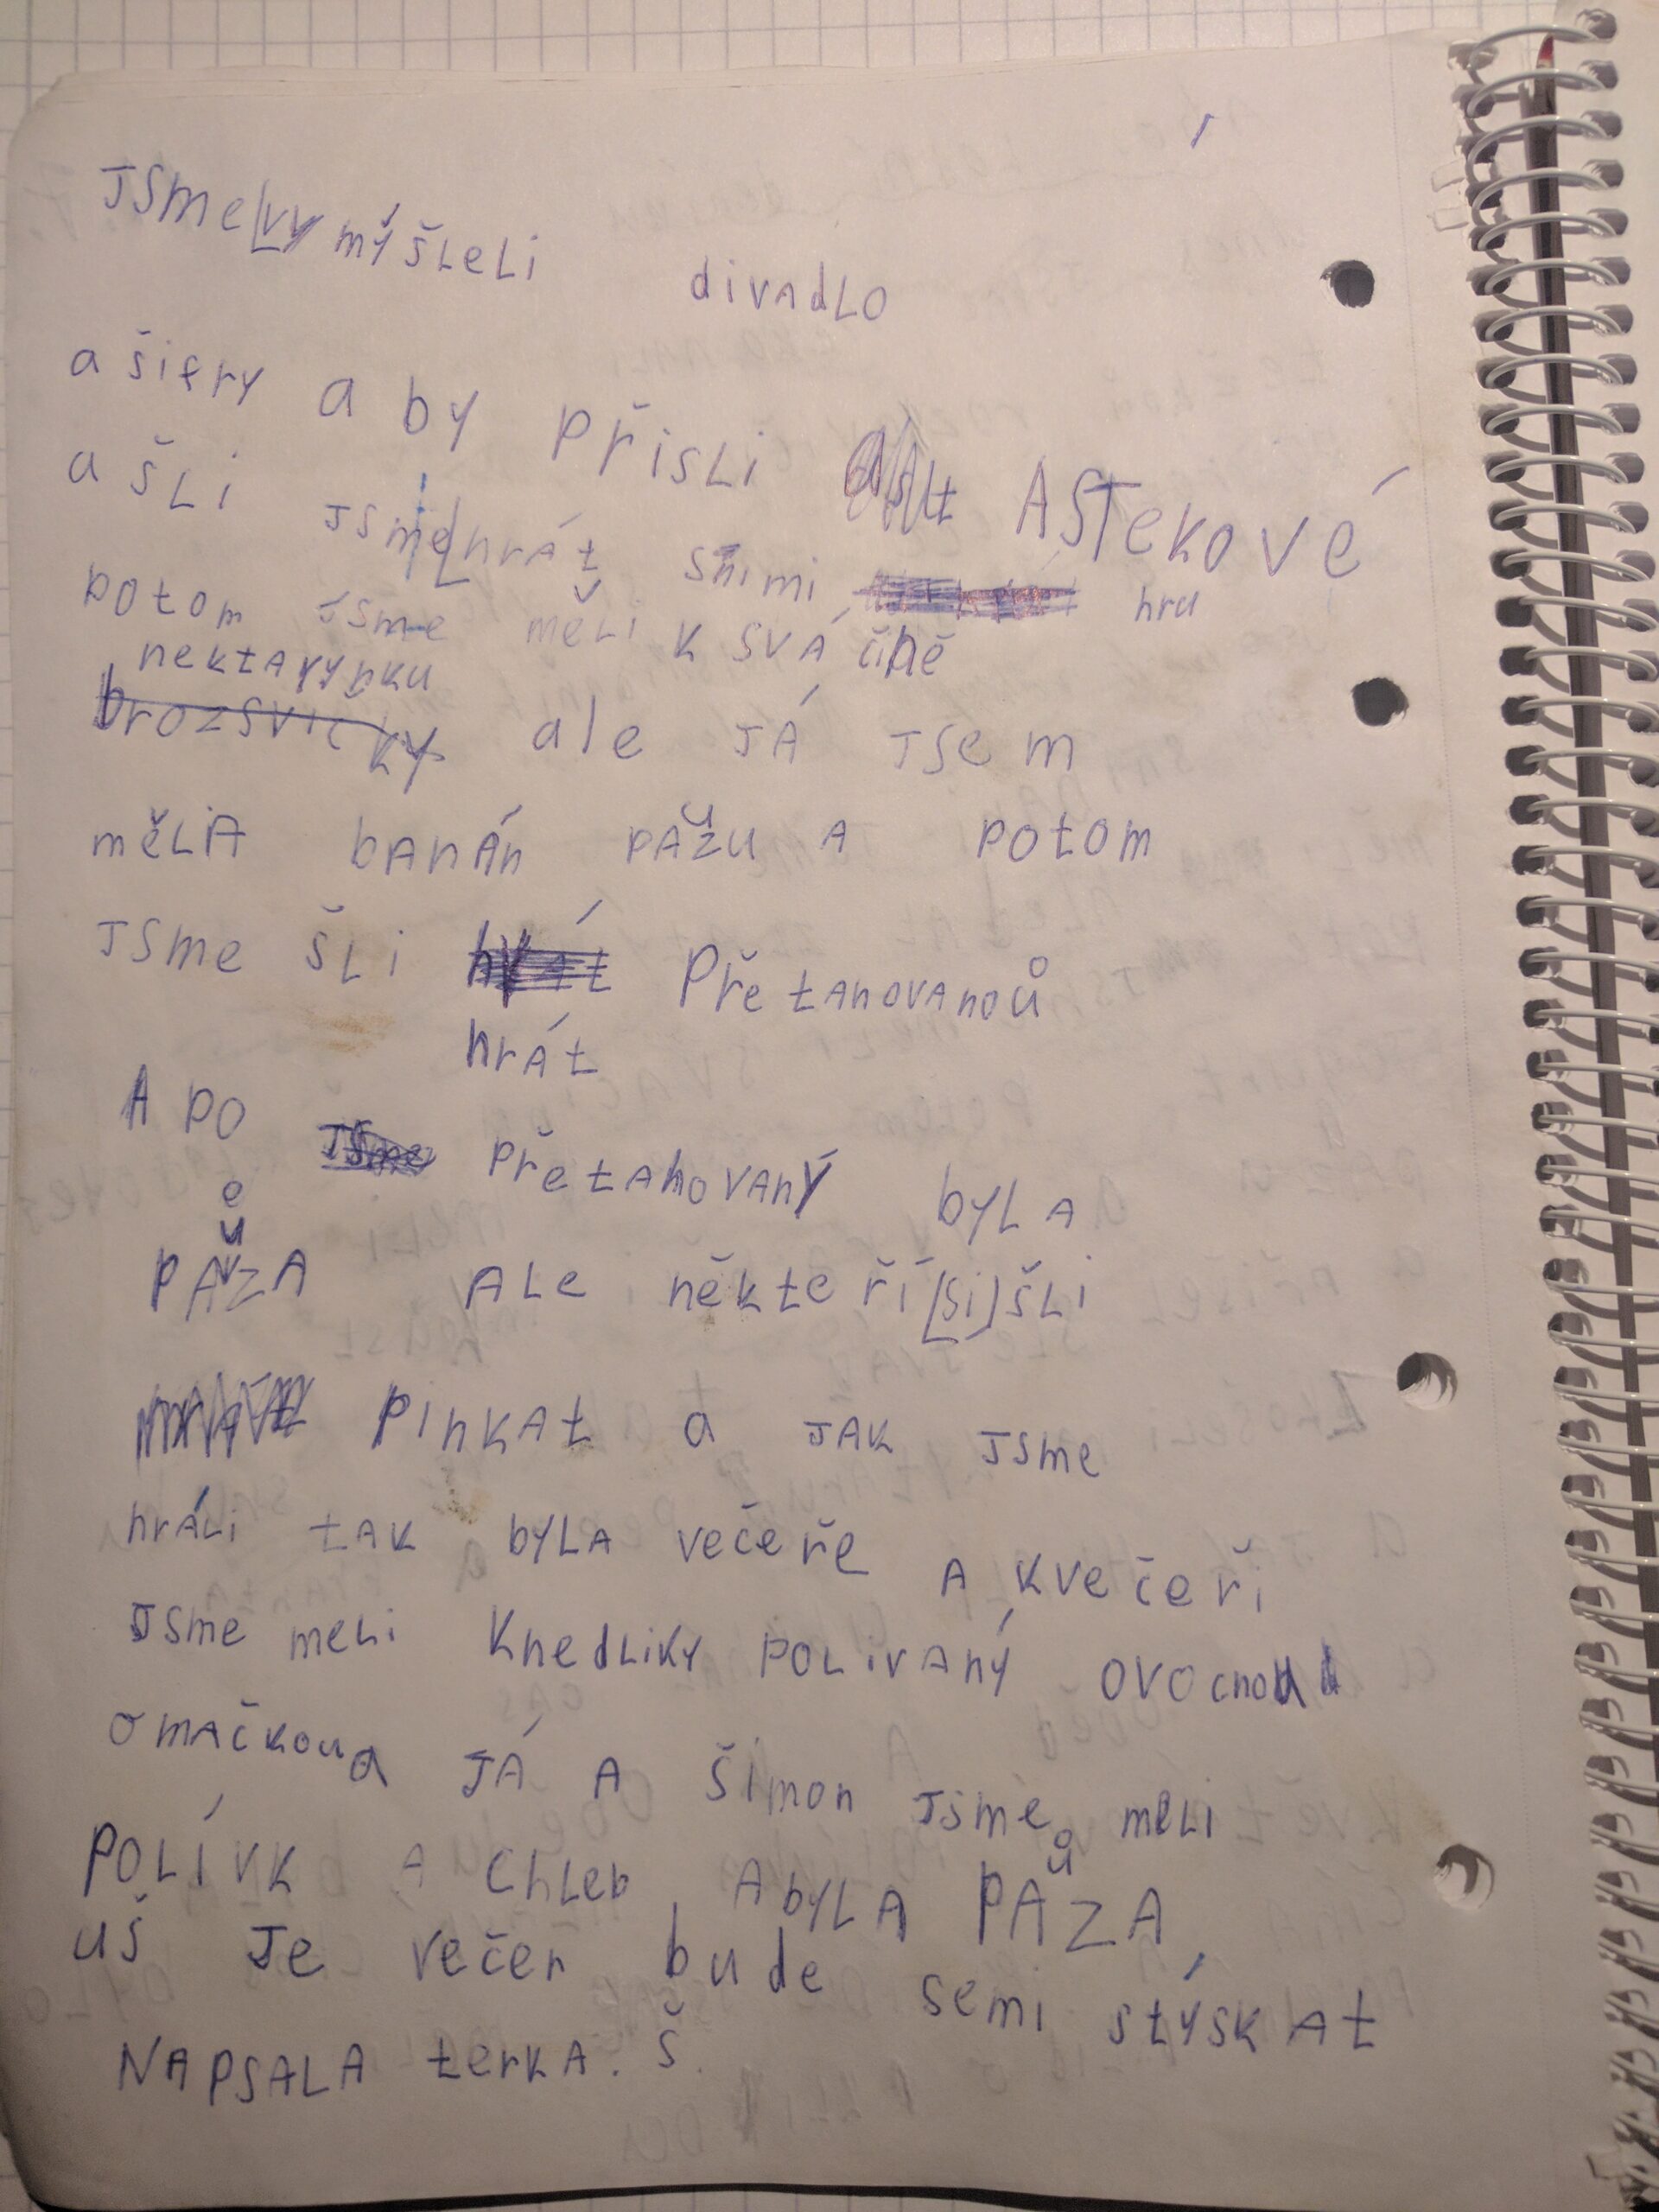 JSme vy mýšleli divadlo
a šifry a by přisli ASTekové
a šli jsme hrát snimi hru
potom jsme měli k svá čině
nektarynku
brozsvičky ale JÁ jsem
mělA banán paůzu a potom
jsme šli hrát Přetahovanoů
hrát
A po jsme přetahovaný byla
PAůzA Ale někteří (si) šli
pinkat a jak jsme
hráli tak byla večeře a kvečeři
jsme meli Knedliky polivaný ovocnou
omačkou a JÁ A Šimon jsme meli
POLÍVK A Chleb, A byla PAůZA,
uš je večer bude semi stýskat
NAPSALA terkA. Š.